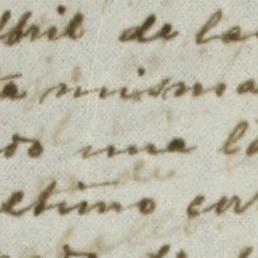 Abril de la
ta misma
do una la
etimo cor